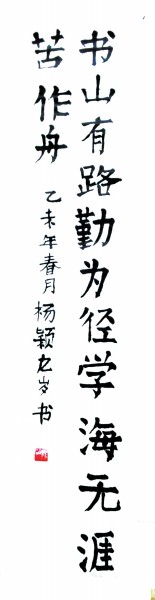 书山有路勤为径学海无涯
苦作舟
乙未年春月杨颖九岁书